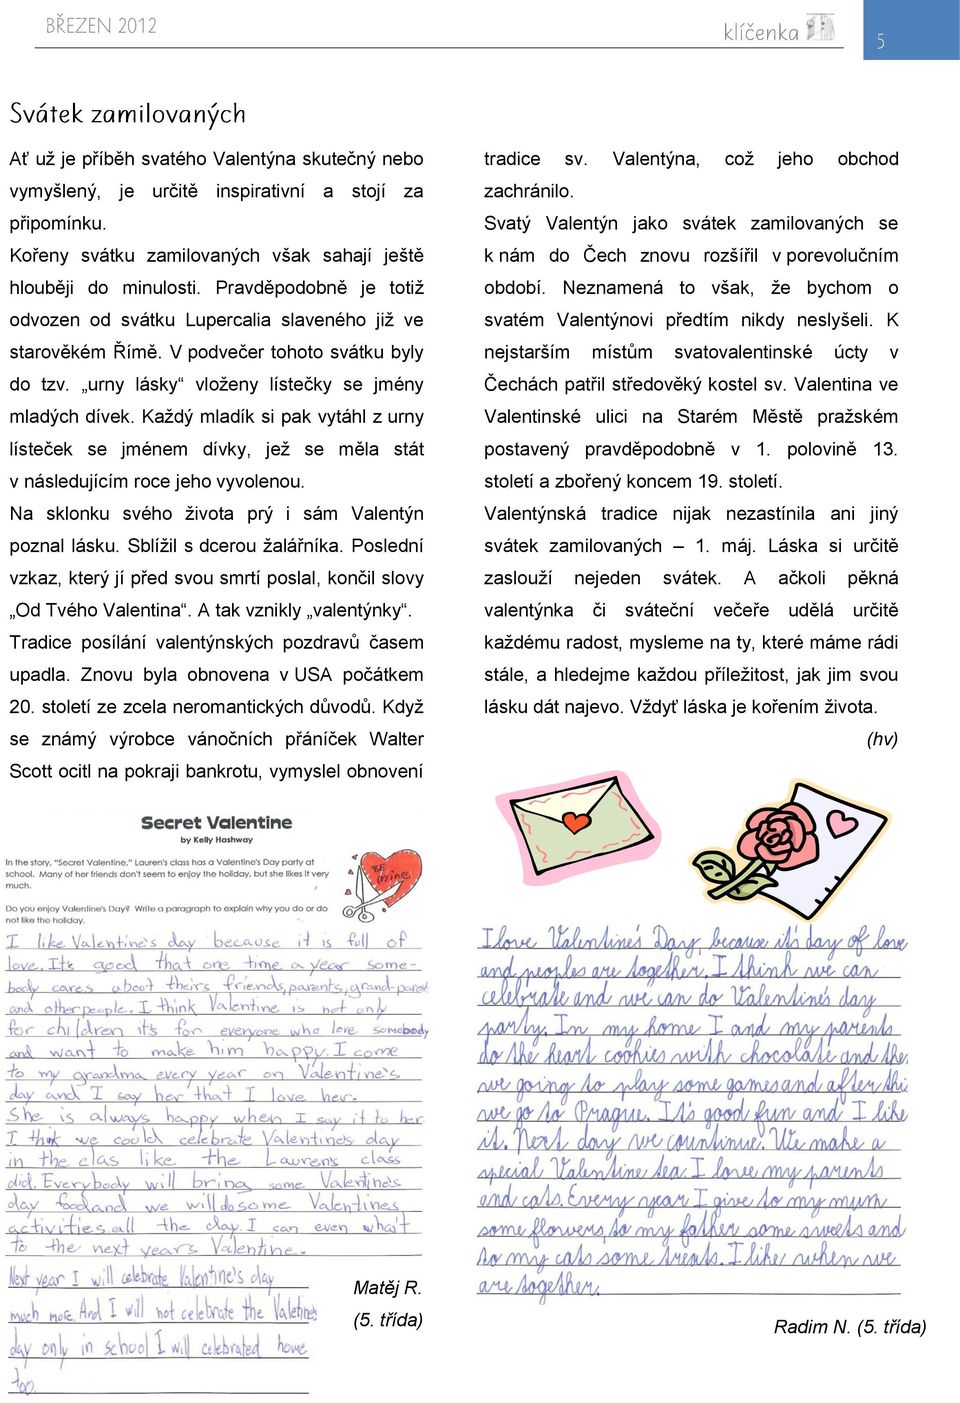 BŘEZEN 2012
klíčenka
5
Svátek zamilovaných
Ať už je příběh svatého Valentýna skutečný nebo
vymyšlený, je určitě inspirativní a stojí za
připomínku.
Kořeny svátku zamilovaných však sahají ještě
hlouběji do minulosti. Pravděpodobně je totiž
odvozen od svátku Lupercalia slaveného již ve
starověkém Římě. V podvečer tohoto svátku byly
do tzv. „urny lásky“ vloženy lístečky se jmény
mladých dívek. Každý mladík si pak vytáhl z urny
lísteček se jménem dívky, jež se měla stát
v následujícím roce jeho vyvolenou.
Na sklonku svého života prý i sám Valentýn
poznal lásku. Sblížil s dcerou žalářníka. Poslední
vzkaz, který jí před svou smrtí poslal, končil slovy
„Od Tvého Valentina“. A tak vznikly „valentýnky“.
Tradice posílání valentýnských pozdravů časem
upadla. Znovu byla obnovena v USA počátkem
20. století ze zcela neromantických důvodů. Když
se známý výrobce vánočních přáníček Walter
Scott ocitl na pokraji bankrotu, vymyslel obnovení
tradice sv. Valentýna, což jeho obchod
zachránilo.
Svatý Valentýn jako svátek zamilovaných se
k nám do Čech znovu rozšířil v porevolučním
období. Neznamená to však, že bychom o
svatém Valentýnovi předtím nikdy neslyšeli. K
nejstarším místům svatovalentinské úcty v
Čechách patřil středověký kostel sv. Valentina ve
Valentinské ulici na Starém Městě pražském
postavený pravděpodobně v 1. polovině 13.
století a zbořený koncem 19. století.
Valentýnská tradice nijak nezastínila ani jiný
svátek zamilovaných – 1. máj. Láska si určitě
zaslouží nejeden svátek. A ačkoli pěkná
valentýnka či sváteční večeře udělá určitě
každému radost, mysleme na ty, které máme rádi
stále, a hledejme každou příležitost, jak jim svou
lásku dát najevo. Vždyť láska je kořením života.
(hv)
Secret Valentine
by Kelly Hashway
In the story, "Secret Valentine," Lauren's class has a Valentine's Day party at
school. Many of her friends don't seem to enjoy the holiday, but she likes it very
much.
BE mine
Do you enjoy Valentine's Day? Write a paragraph to explain why you do or do
not like the holiday.
I like Valentine's day because it is foll of
love. It's good that one time a year some-
body cares aboot theirs friends, parents, grand-parents
and other people. I think Valentine is not only
for children it's for everyone who love somebody
and want to make him happy. I come
to my grandma every year on Valentine's
day and I say her that I love her.
She is always happy when I say it to her.
I think we could celebrate Valentine's day
in the clas like the Lauren's class
did. Everybody will bring some Valentine's
day food and we will do some Valentines
activities all the day. I can even wha't
to the next year's Valentine.
Next year I will celebrate Valentine's day
much more. And I will not celebrate the Valentines
day only in school I will celebrated home
too.
Matěj R.
(5. třída)
I love Valentine's Day, because it's day of love
and peoples are together. I think we can
celebrate and we can do Valentine's day
party. In my home I and my parents
do the heart cookies with chocolate and the
we going to play some games and after thi
we go to Prague. It's good fun and I like
it. Next day we countinue. We make a
special Valentine tea. I love my parents
and cats. Every year I give to my mum
some flowers, to my father some sweets and
to my cats some treats. I like when we
are together.
Radim N. (5. třída)